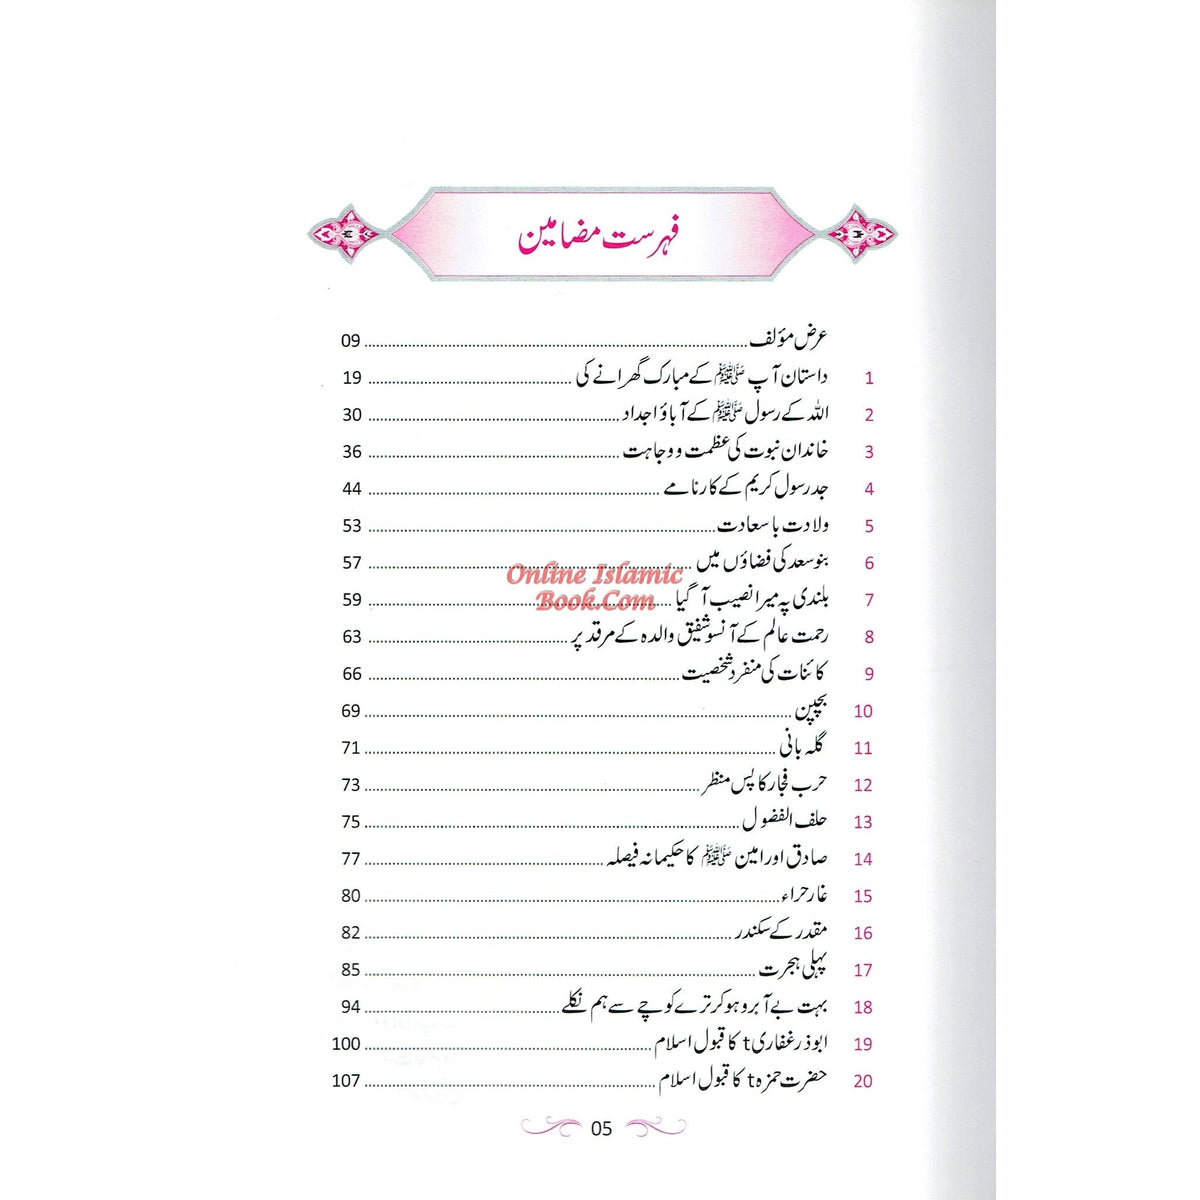 فہرست مضامین
عرض مؤلف 09
1 داستان آپ ﷺ کے مبارک گھرانے کی 19
2 اللہ کے رسول ﷺ کے آباؤ اجداد 30
3 خاندان نبوت کی عظمت و وجاہت 36
4 جد رسول کریم کے کارنامے 44
5 ولادت باسعادت 53
6 بنو سعد کی فضاؤں میں 57
Online Islamic
7 بلندی پہ میرا نصیب آ گیا 59
Book.Com
8 رحمت عالم کے آنسو شفیق والدہ کے مرقد پر 63
9 کائنات کی منفرد شخصیت 66
10 بچپن 69
11 گلہ بانی 71
12 حرب فجار کا پس منظر 73
13 حلف الفضول 75
14 صادق اور امین ﷺ کا حکیمانہ فیصلہ 77
15 غار حراء 80
16 مقدر کے سکندر 82
17 پہلی ہجرت 85
18 بہت بے آبرو ہو کر ترے کوچے سے ہم نکلے 94
19 ابوذر غفاری t کا قبول اسلام 100
20 حضرت حمزہ t کا قبول اسلام 107
05